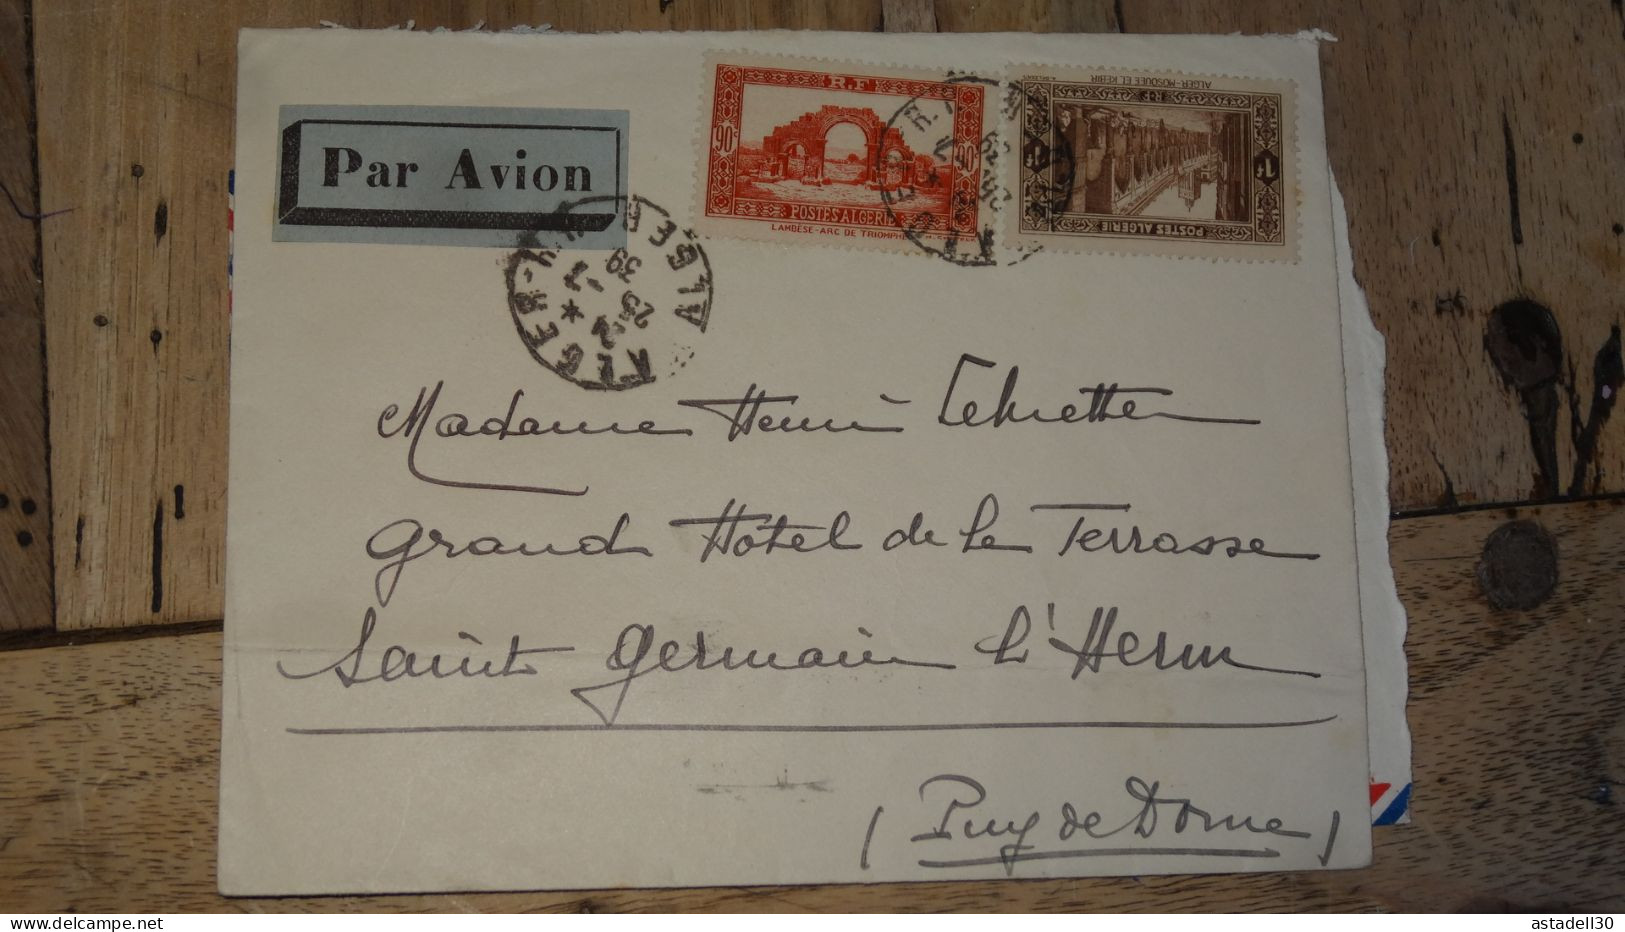 Par Avion
R.F
90c 90c
POSTES ALGERIE
LAMBÈSE-ARC DE TRIOMPHE
ALGER-MOSQUÉE EL KEBIR
R.F
1f 1f
POSTES ALGERIE
ALGER R.P. ALGER
39
23-2
Madame Henri
Grand Hôtel de la Terrasse
Saint Germain l'Herm
(Puy de Dome)
astadell30
delcampe.net